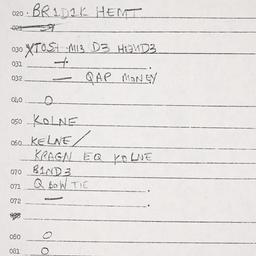 020 · BRIDIK HEMT
030 XTOSI · MIB D3 HIENDE
031 + .
032 — QAP MONEY
040 O
050 KOLNE
060 KELNE /
KRAGN EQ KOLNE
070 BIND3
071 Q BOW TIE .
072 — .
080 O
081 O